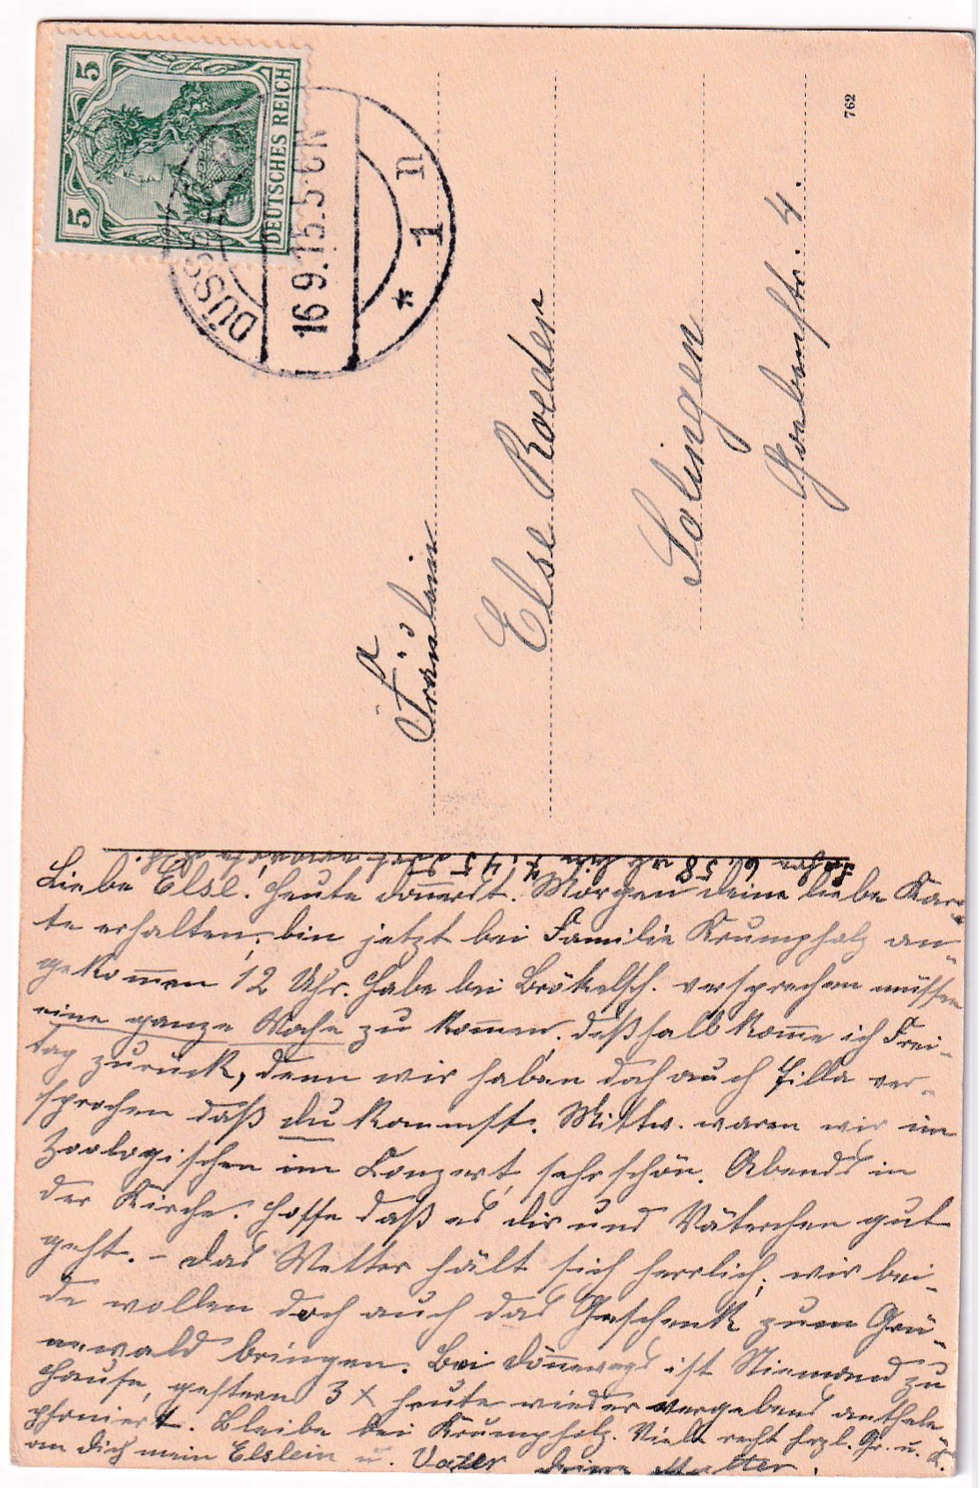 5
5
DEUTSCHES REICH
DÜSS
16 9.15.5-6N
* 1 n
762
Fräulein
Else Roeder
Solingen
Goebenstr. 4.
Liebe Else. Heute Donnerst. Morgen deine liebe Kar-
te erhalten, bin jetzt bei Familie Krumpholz an-
gekommen 12 Uhr. Habe bei Brökelsch. versprechen müssen
eine ganze Woche zu kommen, deßhalb komme ich Frei-
tag zurück, denn wir haben doch auch Zilla ver-
sprochen daß du kommst. Mittw. waren wir im
Zoologischen im Conzert, sehr schön. Abends in
der Kirche. Hoffe daß es dir und Väterchen gut
geht. - Das Wetter hält sich herrlich, wir bei-
de wollen doch auch das Geschenk zum Grü-
newald bringen. Bei ist Niemand zu
Hause, gestern 3 x heute wieder vergebens anthele-
phoniert. Bleibe bei Krumpholz. Viele recht herzl. Gr. u. K.
an dich mein Elslein u. Vater deine Mutter.
6.58 7.45 dort